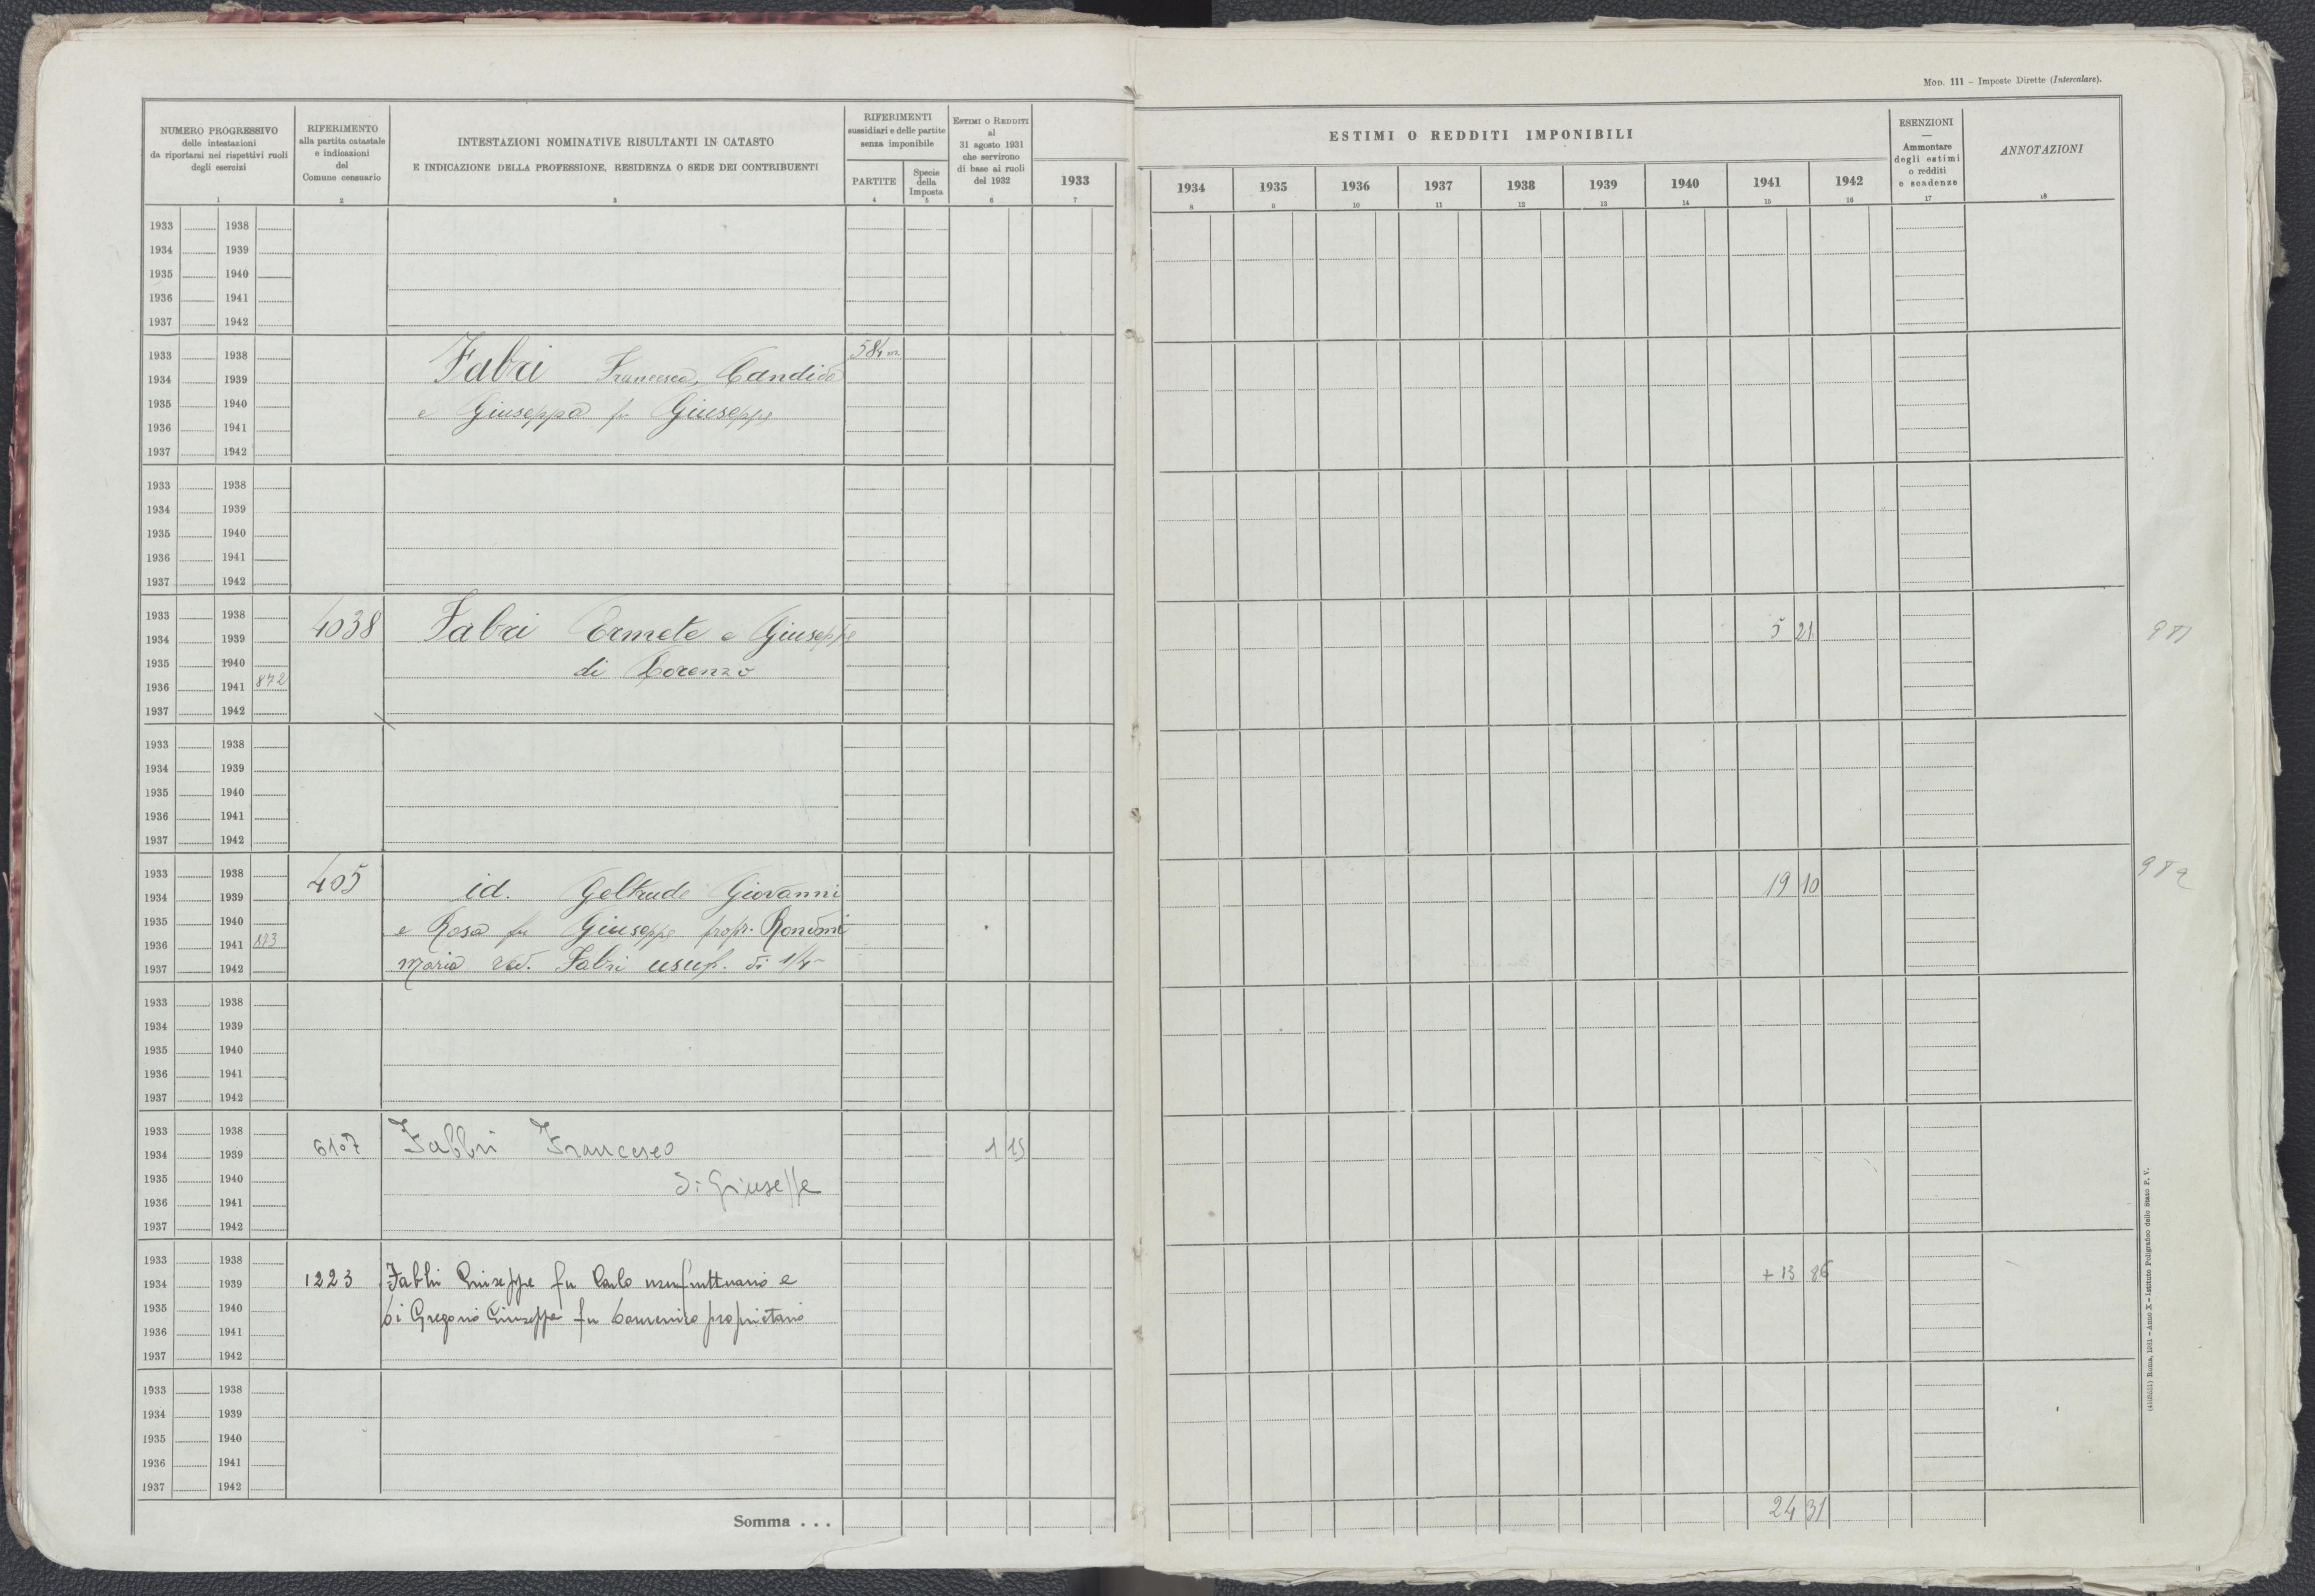 Mod. 111 – Imposte Dirette (Intercalare).
NUMERO PROGRESSIVO
delle intestazioni
da riportarsi nei rispettivi ruoli
degli esercizi
1
RIFERIMENTO
alla partita catastale
e indicazioni
del
Comune censuario
2
INTESTAZIONI NOMINATIVE RISULTANTI IN CATASTO
E INDICAZIONE DELLA PROFESSIONE, RESIDENZA O SEDE DEI CONTRIBUENTI
3
RIFERIMENTI
sussidiari e delle partite
senza imponibile
PARTITE
4
Specie
della
Imposta
5
Estimi o Redditi
al
31 agosto 1931
che servirono
di base ai ruoli
del 1932
6
1933
7
ESTIMI O REDDITI IMPONIBILI
1934 1935 1936 1937 1938 1939 1940 1941 1942
8 9 10 11 12 13 14 15 16
ESENZIONI
—
Ammontare
degli estimi
o redditi
e scadenze
17
ANNOTAZIONI
18
1933 1938
1934 1939
1935 1940
1936 1941
1937 1942
1933 1938 584
1934 1939 Fabri Francesco, Candida
1935 1940 e Giuseppa fu Giuseppe
1936 1941
1937 1942
1933 1938
1934 1939
1935 1940
1936 1941
1937 1942
1933 1938
1934 1939 4038 Fabri Ermete e Giuseppe 5 21
1935 1940 di Lorenzo
1936 1941 872
1937 1942
1933 1938
1934 1939
1935 1940
1936 1941
1937 1942
1933 1938
1934 1939 405 id. Geltrude Giovanni 19 10
1935 1940 e Rosa fu Giuseppe propr.
1936 1941 873
1937 1942 Maria ved. Fabri usuf. di 1/4
1933 1938
1934 1939
1935 1940
1936 1941
1937 1942
1933 1938
1934 1939 6107 Fabbri Francesco 1 15
1935 1940 di Giuseppe
1936 1941
1937 1942
1933 1938
1934 1939 1223 Fabbri Giuseppe fu Carlo usufruttuario e + 13 86
1935 1940 Di Gregorio Giuseppa fu Domenico proprietario
1936 1941
1937 1942
1933 1938
1934 1939
1935 1940
1936 1941
1937 1942
Somma . . . 24 31
Roma, 1931 – Anno X – Istituto Poligrafico dello Stato P. V.